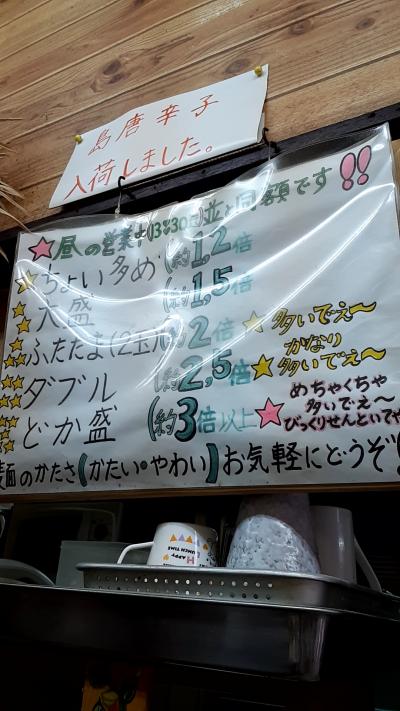 島唐辛子
入荷しました。
★昼の営業は(13時30迄)並と同額です!!
☆ちょい多め(約1,2倍
☆☆大盛(約1,5倍
☆☆☆ふたたま(2玉)(約2倍 ☆多いでぇ〜
☆☆☆☆ダブル(約2,5倍 ☆かなり多いでぇ〜
どか盛(約3倍以上 ☆めちゃくちゃ
多いでぇ〜
びっくりせんといてや
麺のかたさ【かたい・やわい】お気軽にどうぞ!
LUNCH TIME